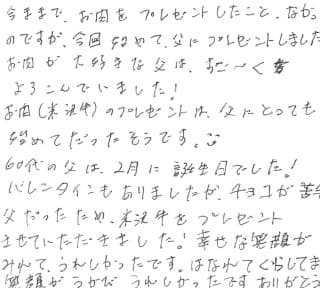 今まで、お肉をプレゼントしたこと、なかった
のですが、今回初めて、父にプレゼントしました
お肉が大好きな父は、すご〜く
よろこんでいました!
お肉(米沢牛)のプレゼントは、父にとっても
初めてだったそうです。
60代の父は、2月に誕生日でした!
バレンタインもありましたが、チョコが苦手
父だったため、米沢牛をプレゼント
させていただきました!幸せな笑顔が
みれて、うれしかったです。はなれてくらしてま
笑顔がうかびうれしかったです ありがとう